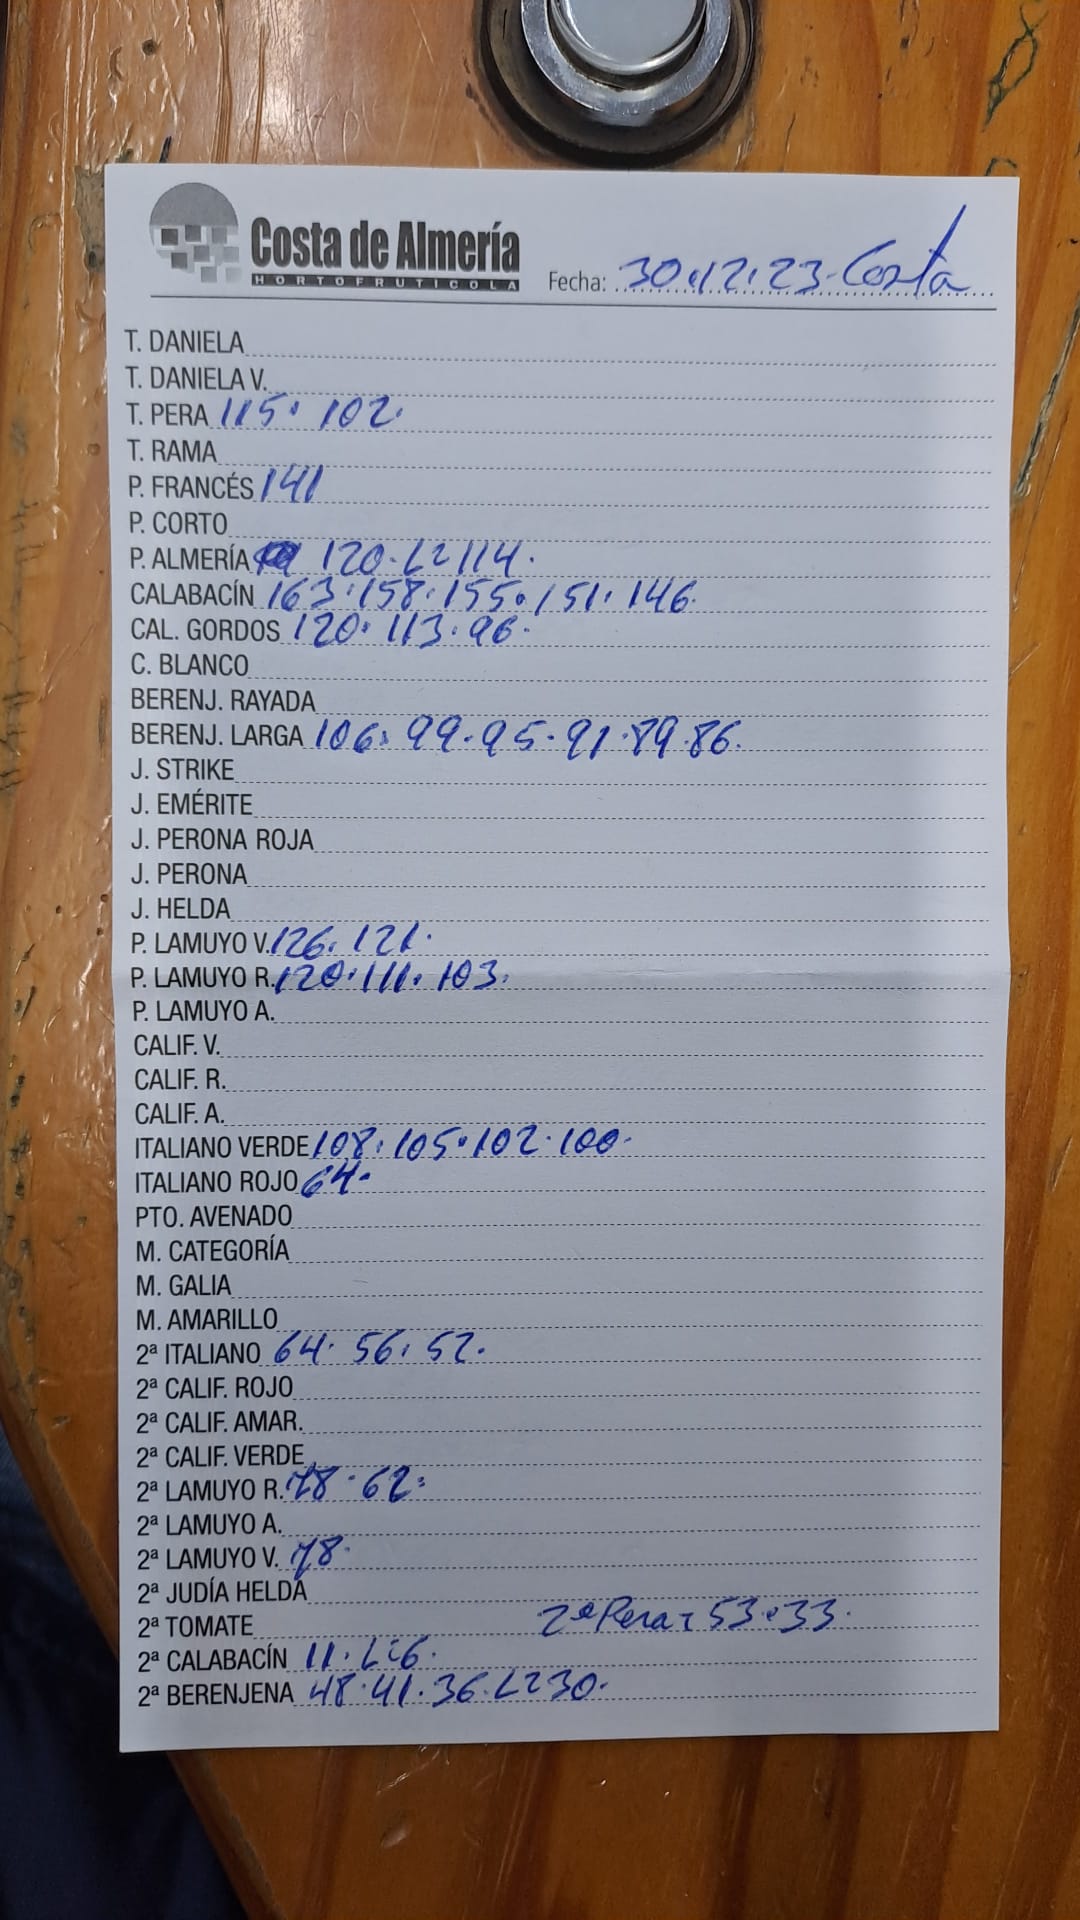 Costa de Almería
HORTOFRUTICOLA
Fecha: 30.12.23. Costa
T. DANIELA
T. DANIELA V.
T. PERA 115. 102.
T. RAMA
P. FRANCÉS 141
P. CORTO
P. ALMERÍA 120. L2 114.
CALABACÍN 163.158.155.151.146.
CAL. GORDOS 120. 113. 96.
C. BLANCO
BERENJ. RAYADA
BERENJ. LARGA 106. 99. 95. 91. 89. 86.
J. STRIKE
J. EMÉRITE
J. PERONA ROJA
J. PERONA
J. HELDA
P. LAMUYO V. 126. 121.
P. LAMUYO R. 120. 111. 103.
P. LAMUYO A.
CALIF. V.
CALIF. R.
CALIF. A.
ITALIANO VERDE 108. 105. 102. 100.
ITALIANO ROJO 64.
PTO. AVENADO
M. CATEGORÍA
M. GALIA
M. AMARILLO
2ª ITALIANO 64. 56. 52.
2ª CALIF. ROJO
2ª CALIF. AMAR.
2ª CALIF. VERDE
2ª LAMUYO R. 78. 62.
2ª LAMUYO A.
2ª LAMUYO V. 78.
2ª JUDÍA HELDA
2ª TOMATE 2ª Pera = 53. 33.
2ª CALABACÍN 11. L 6.
2ª BERENJENA 48. 41. 36. L2 30.